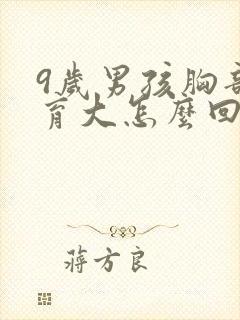 9歲男孩胸部
育大怎麼回
蔣方良